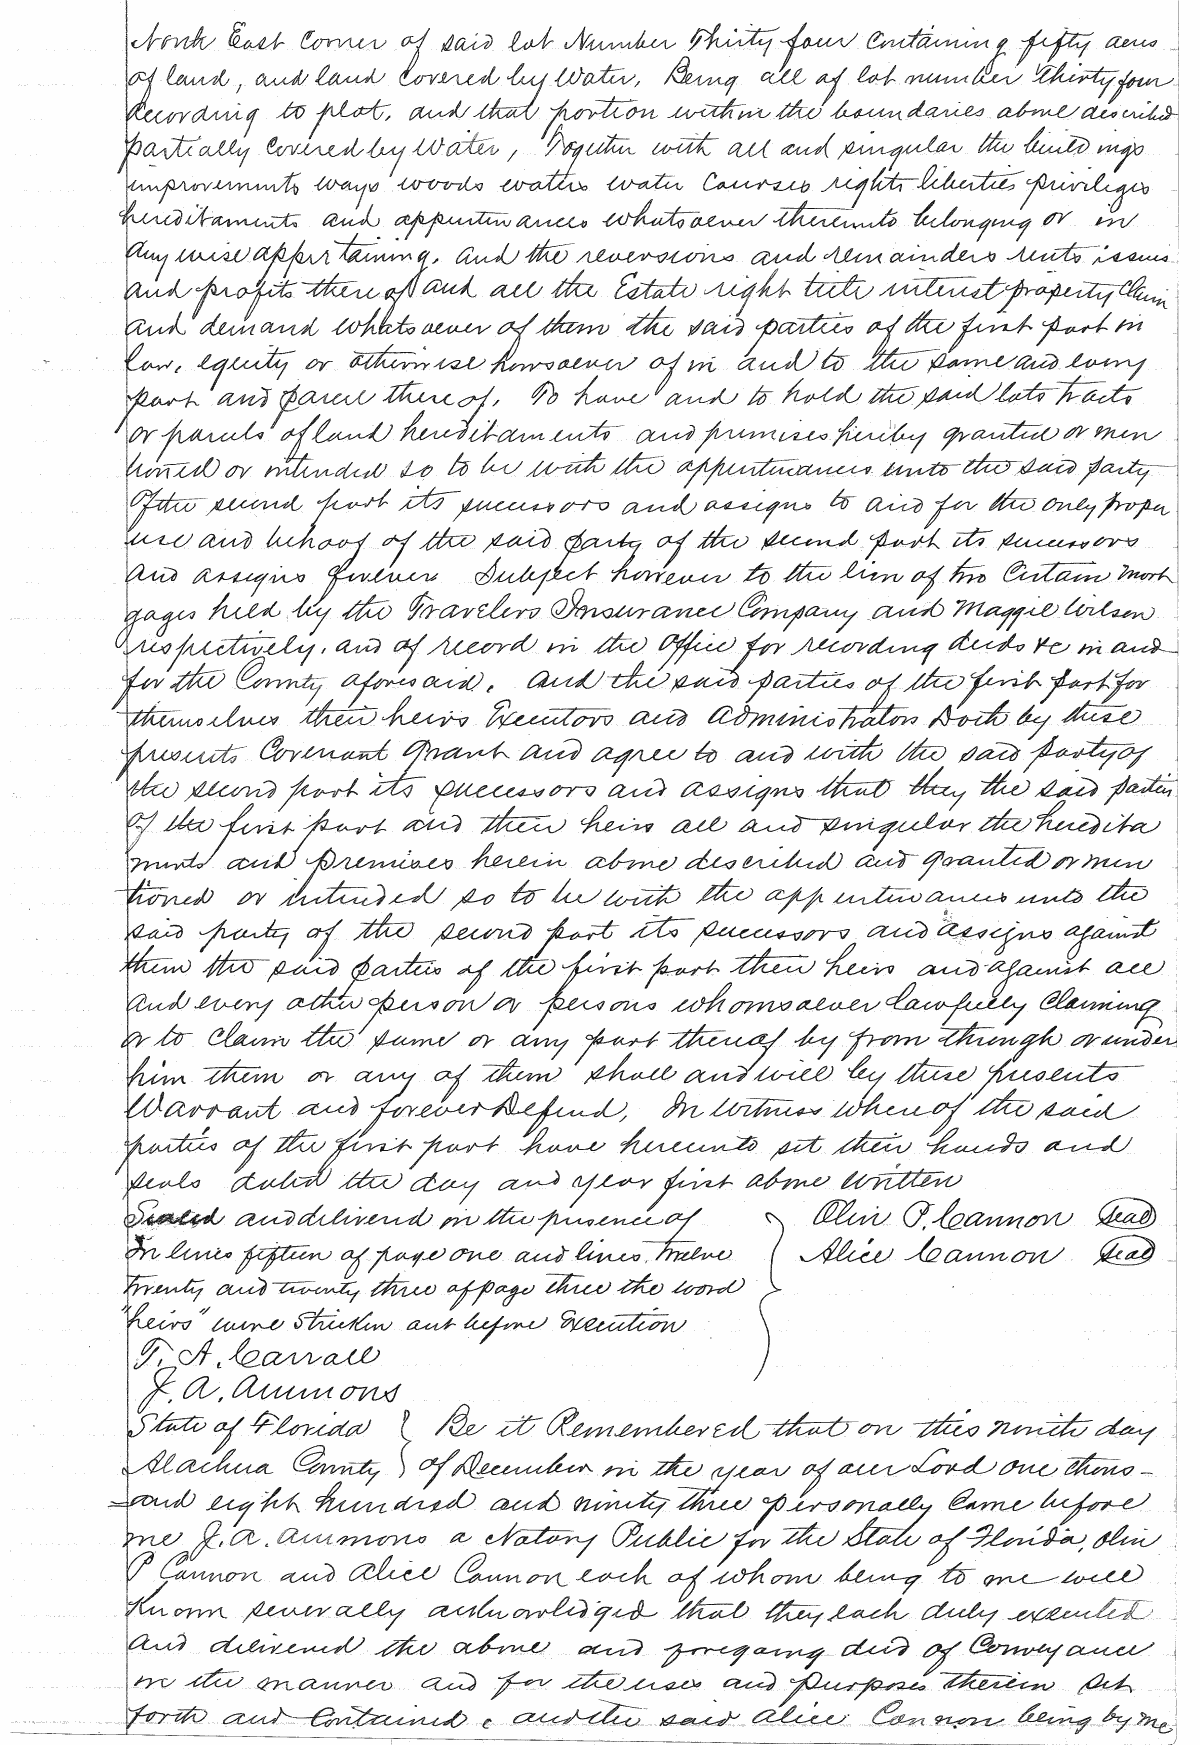 North East Corner of said lot Number Thirty four Containing fifty acres
of land, and land Covered by Water, Being all of lot number Thirty four
according to plot, and that portion within the boundaries above described
partially Covered by Water, Together with all and singular the buildings
improvements ways woods waters water Courses rights liberties privileges
hereditaments and appurtinances whatsoever thereunto belonging or in
Any wise appertaining, and the reversions and remainders rents issues
and profits thereof and all the Estate right title interest property Claim
and demand whatsoever of them the said parties of the first part in
law, equity or otherwise howsoever of in and to the same and every
part and parcel thereof, To have and to hold the said lots tracts
or parcels of land hereditaments and premises hereby granted or men
tioned or intended so to be with the appurtenances unto the said party
Of the second part its successors and assigns to and for the only proper
use and behoof of the said party of the second part its successors
and assigns forever Subject however to the lien of two Certain Mort
gages held by the Travelers Insurance Company and Maggie Wilson
respectively, and of record in the Office for recording deeds &c in and
for the County aforesaid. And the said parties of the first part for
themselves their heirs Executors and Administrators Doth by these
presents Covenant Grant and agree to and with the said party of
the second part its successors and assigns that they the said parties
Of the first part and their heirs all and singular the heredita
ments and premises herein above described and granted or men
tioned or intended so to be with the appurtenances unto the
said party of the second part its successors and assigns against
them the said parties of the first part their heirs and against all
and every other person or persons whomsoever lawfully Claiming
or to Claim the same or any part thereof by from through or under
him them or any of them shall and will by these presents
Warrant and forever Defend, In Witness whereof the said
parties of the first part have hereunto set their hands and
seals dated the day and year first above written
Sealed and delivered in the presence of Olin P. Cannon Seal
In lines fifteen of page one and lines twelve Alice Cannon Seal
twenty and twenty three of page three the word
"heirs" were Stricken out before Execution
T. A. Carrall
J. A. Ammons
State of Florida Be it Remembered that on this ninth day
Alachua County of December in the year of our Lord one thous-
=and eight hundred and ninety three personally Came before
me J. A. Ammons a Notary Public for the State of Florida, Olin
P Cannon and Alice Cannon each of whom being to me well
Known severally acknowledged that they each duly executed
and delivered the above and foregoing deed of Conveyance
in the manner and for the uses and purposes therein set
forth and Contained, and the said Alice Cannon being by me